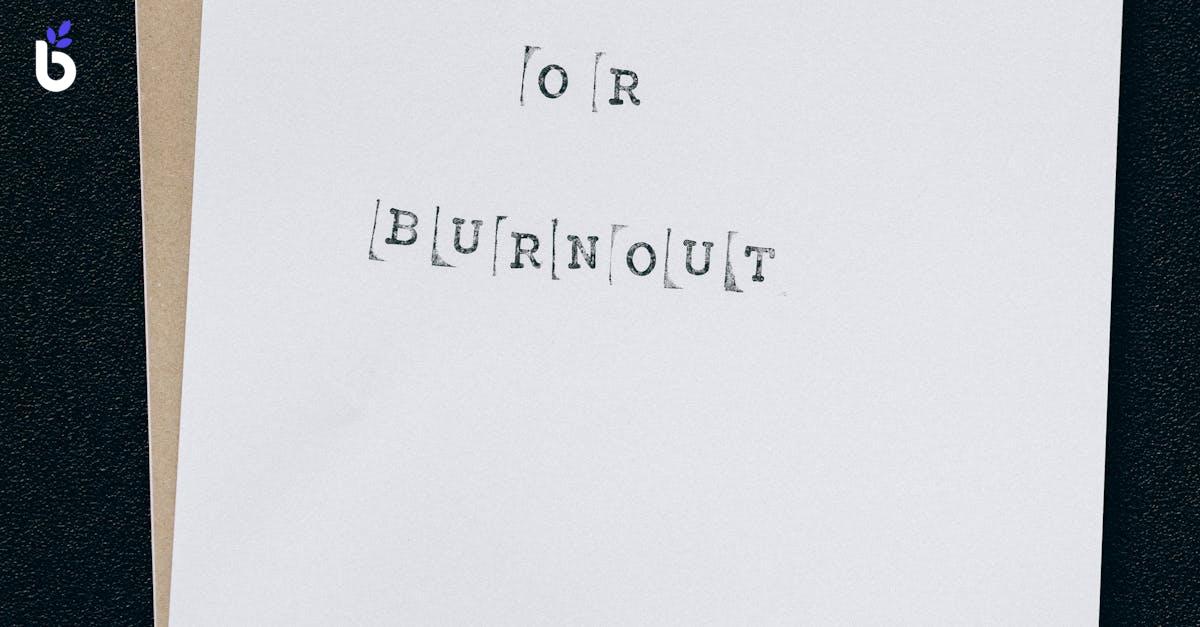 OR
BURNOUT
b